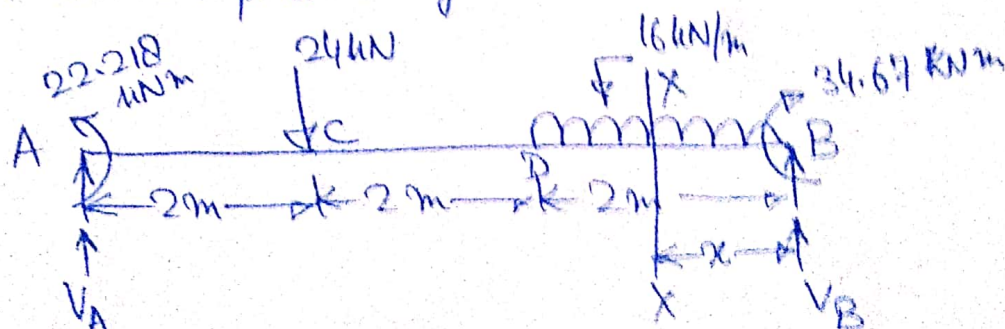 22.218
kNm
24kN
16kN/m
34.67 KNm
A
C
X
B
D
2m
2m
2m
x
X
VA
VB